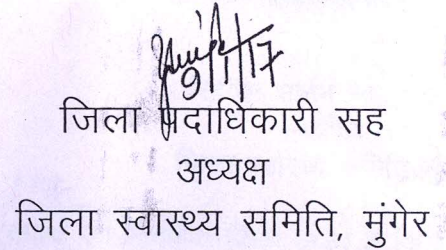 9/1/17
जिला पदाधिकारी सह
अध्यक्ष
जिला स्वास्थ्य समिति, मुंगेर